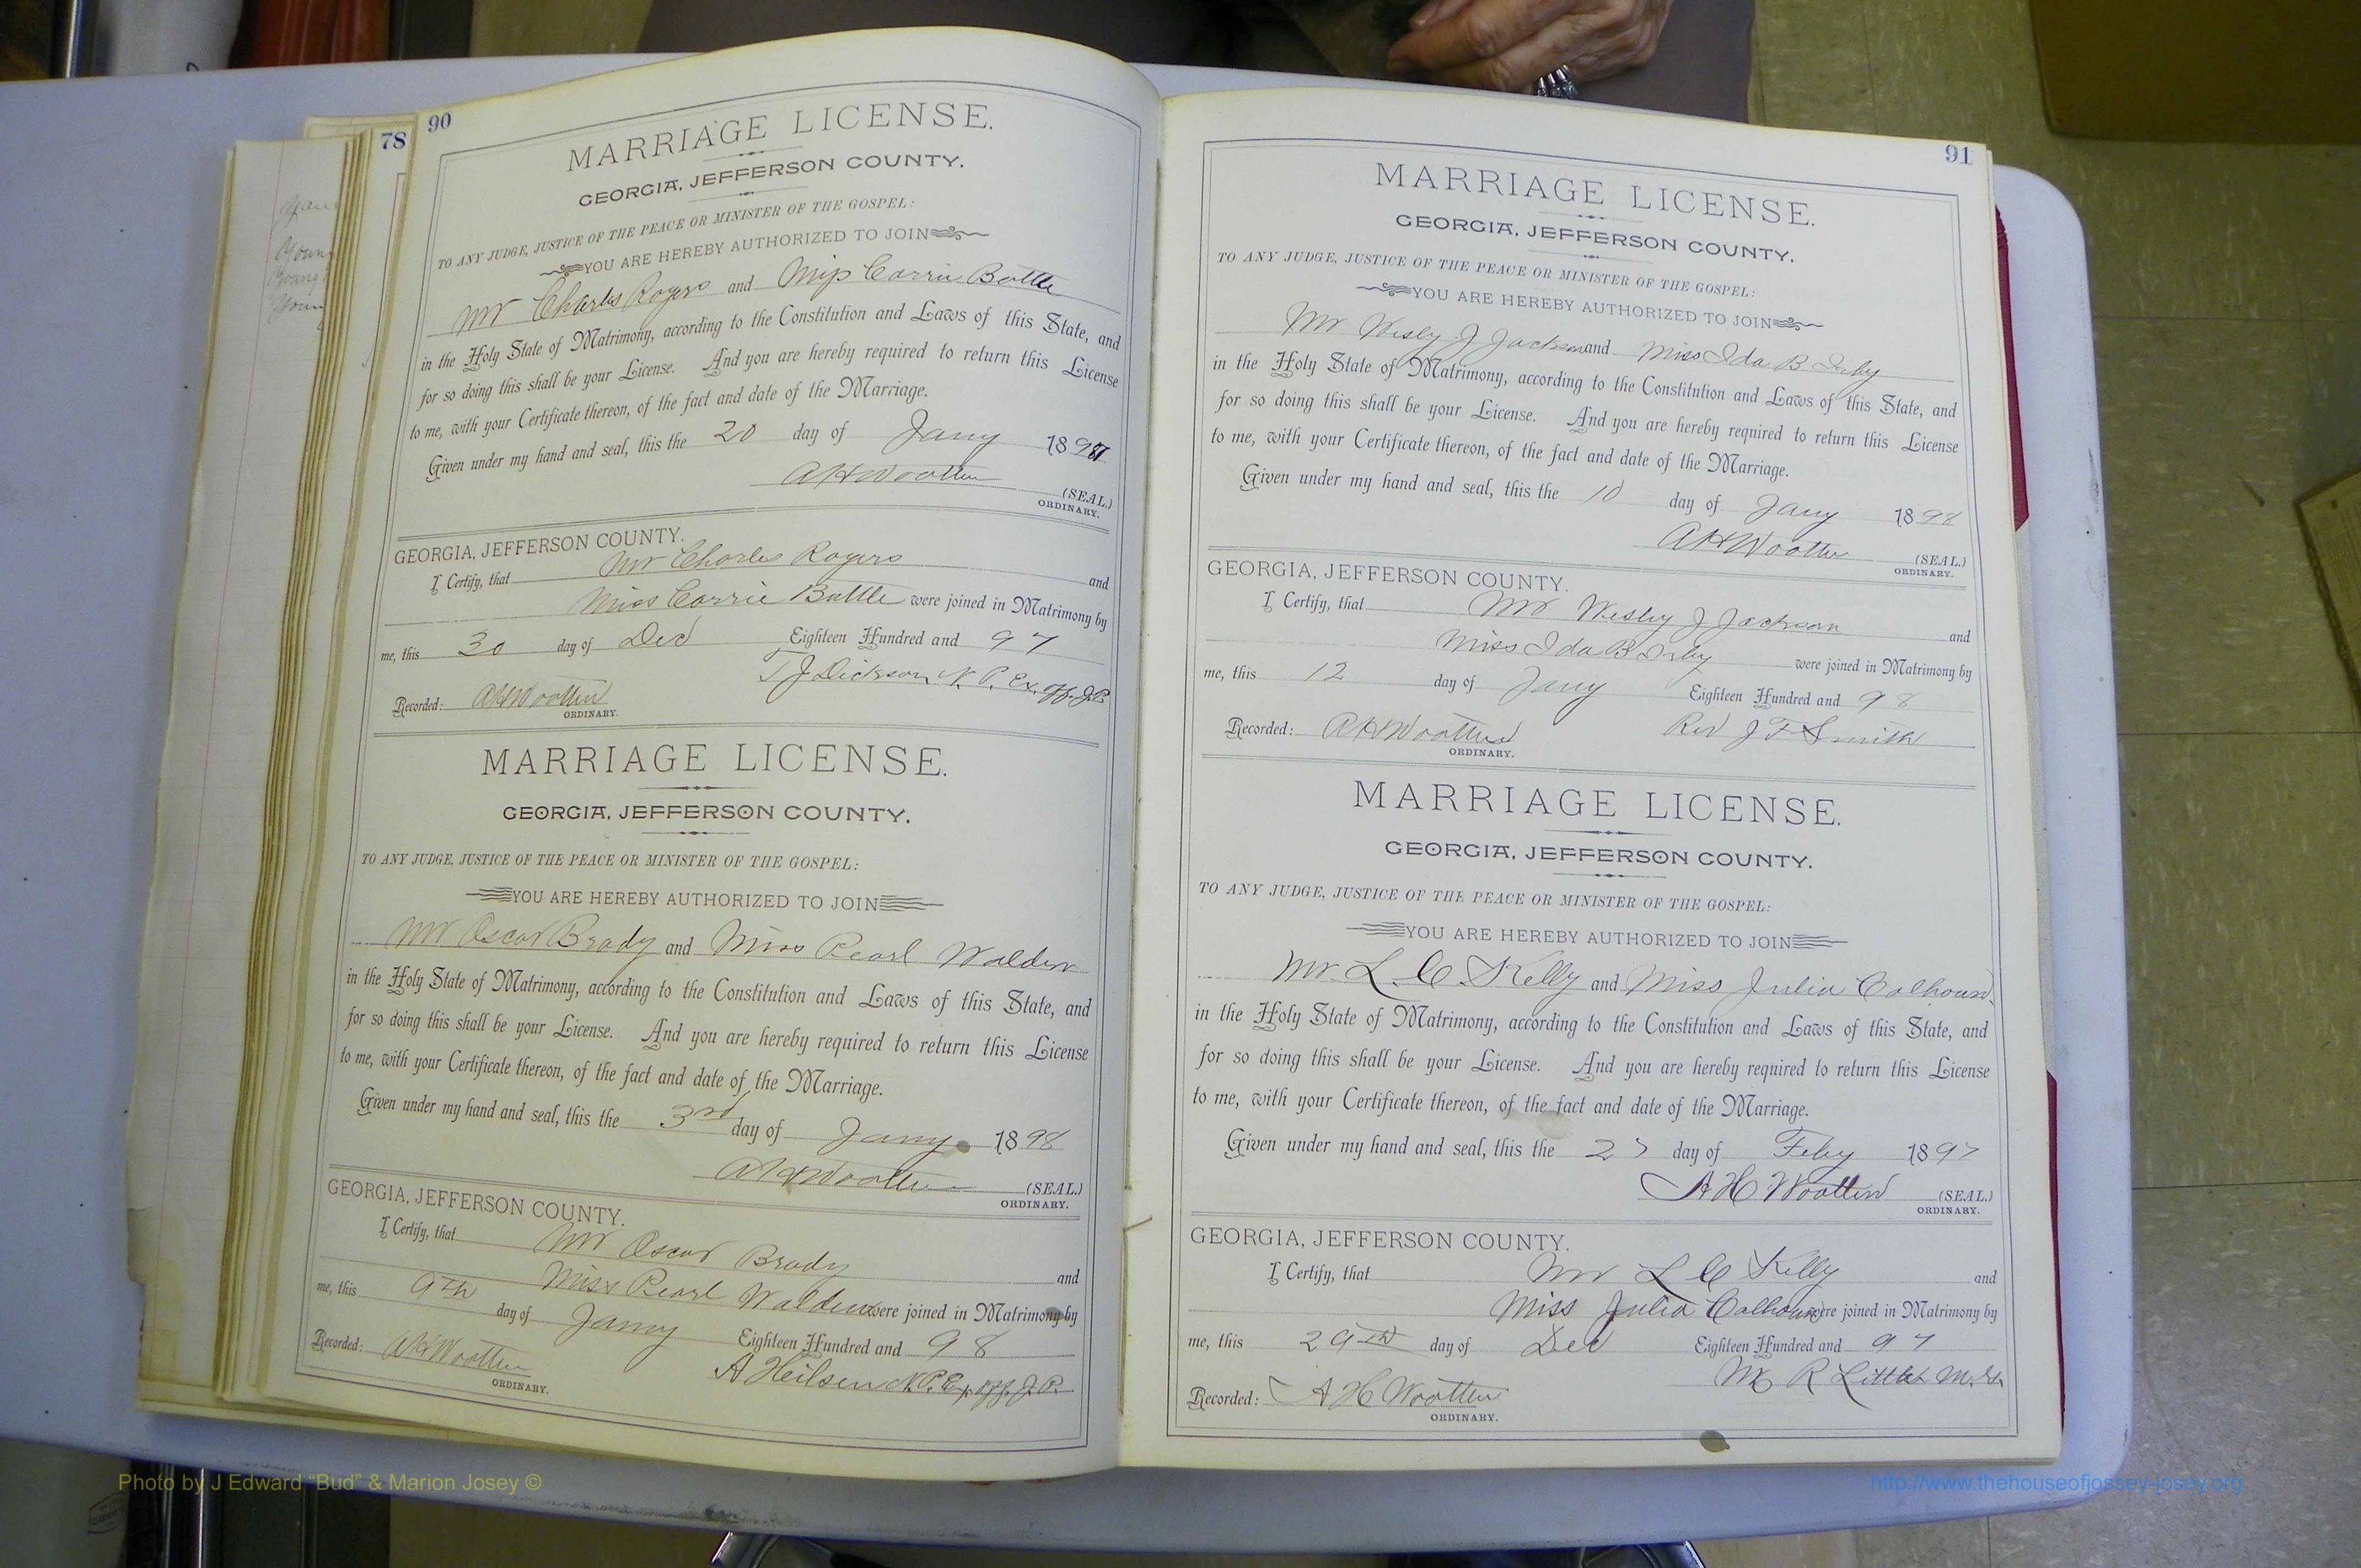 78
90
MARRIAGE LICENSE.
GEORGIA, JEFFERSON COUNTY.
TO ANY JUDGE, JUSTICE OF THE PEACE OR MINISTER OF THE GOSPEL:
YOU ARE HEREBY AUTHORIZED TO JOIN
Mr Charles Rogers and Miss Carrie Battle
in the Holy State of Matrimony, according to the Constitution and Laws of this State, and
for so doing this shall be your License. And you are hereby required to return this License
to me, with your Certificate thereon, of the fact and date of the Marriage.
Given under my hand and seal, this the 20 day of Jany 1897
A H Wootten (SEAL.)
ORDINARY.
GEORGIA, JEFFERSON COUNTY.
I Certify, that Mr Charles Rogers and
Miss Carrie Battle were joined in Matrimony by
me, this 30 day of Dec Eighteen Hundred and 97
T J Dickson N. P. Ex. off. J. P.
Recorded: A H Wootten
ORDINARY.
MARRIAGE LICENSE.
GEORGIA, JEFFERSON COUNTY.
TO ANY JUDGE, JUSTICE OF THE PEACE OR MINISTER OF THE GOSPEL:
YOU ARE HEREBY AUTHORIZED TO JOIN
Mr Oscar Brady and Miss Pearl Walden
in the Holy State of Matrimony, according to the Constitution and Laws of this State, and
for so doing this shall be your License. And you are hereby required to return this License
to me, with your Certificate thereon, of the fact and date of the Marriage.
Given under my hand and seal, this the 3rd day of Jany 1898
A H Wootten (SEAL.)
ORDINARY.
GEORGIA, JEFFERSON COUNTY.
I Certify, that Mr Oscar Brady and
Miss Pearl Walden were joined in Matrimony by
me, this 9th day of Jany Eighteen Hundred and 98
A Heilsen N. P. Ex. off. J. P.
Recorded: A H Wootten
ORDINARY.
91
MARRIAGE LICENSE.
GEORGIA, JEFFERSON COUNTY.
TO ANY JUDGE, JUSTICE OF THE PEACE OR MINISTER OF THE GOSPEL:
YOU ARE HEREBY AUTHORIZED TO JOIN
Mr Wesly J Jackson and Miss Ida B Irby
in the Holy State of Matrimony, according to the Constitution and Laws of this State, and
for so doing this shall be your License. And you are hereby required to return this License
to me, with your Certificate thereon, of the fact and date of the Marriage.
Given under my hand and seal, this the 10 day of Jany 1898
A H Wootten (SEAL.)
ORDINARY.
GEORGIA, JEFFERSON COUNTY.
I Certify, that Mr Wesly J Jackson and
Miss Ida B Irby were joined in Matrimony by
me, this 12 day of Jany Eighteen Hundred and 98
Rev J F Smith
Recorded: A H Wootten
ORDINARY.
MARRIAGE LICENSE.
GEORGIA, JEFFERSON COUNTY.
TO ANY JUDGE, JUSTICE OF THE PEACE OR MINISTER OF THE GOSPEL:
YOU ARE HEREBY AUTHORIZED TO JOIN
Mr L C Kelly and Miss Julia Calhoun
in the Holy State of Matrimony, according to the Constitution and Laws of this State, and
for so doing this shall be your License. And you are hereby required to return this License
to me, with your Certificate thereon, of the fact and date of the Marriage.
Given under my hand and seal, this the 27 day of Feby 1897
A H Wootten (SEAL.)
ORDINARY.
GEORGIA, JEFFERSON COUNTY.
I Certify, that Mr L C Kelly and
Miss Julia Calhoun were joined in Matrimony by
me, this 29th day of Dec Eighteen Hundred and 97
R Little M.G.
Recorded: A H Wootten
ORDINARY.
Photo by J Edward "Bud" & Marion Josey ©
http://www.thehouseofjossey-josey.org